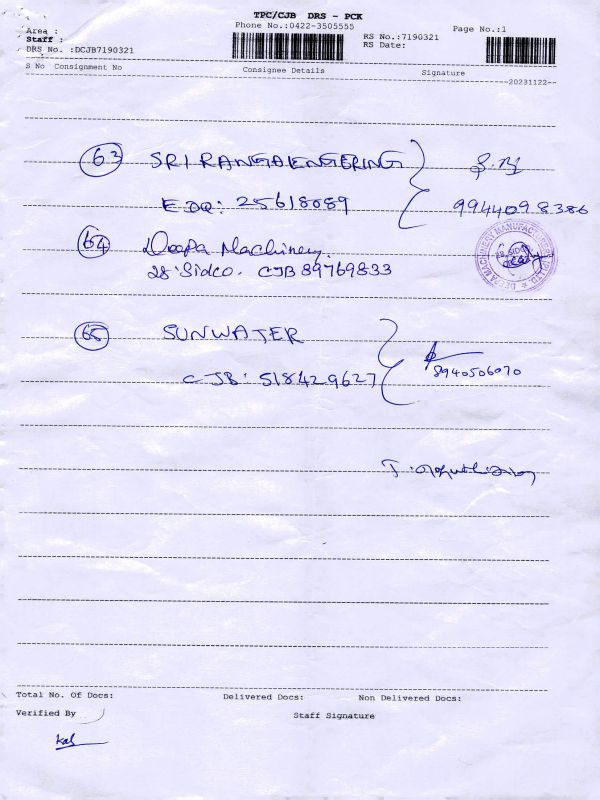 TPC/CJB DRS - PCK
Area : Phone No.:0422-3505555 Page No.:1
Staff : RS No.:7190321
DRS No. :DCJB7190321 RS Date:
S No Consignment No Consignee Details Signature
--20231122--
63 SRI RANGA ENGERING
EDQ: 25618089 9944098386
64 Deepa Machinery.
28.Sidco. CJB 89769833
65 SUNWATER
CJB: 518429627 8940506070
Total No. Of Docs: Delivered Docs: Non Delivered Docs:
Verified By Staff Signature